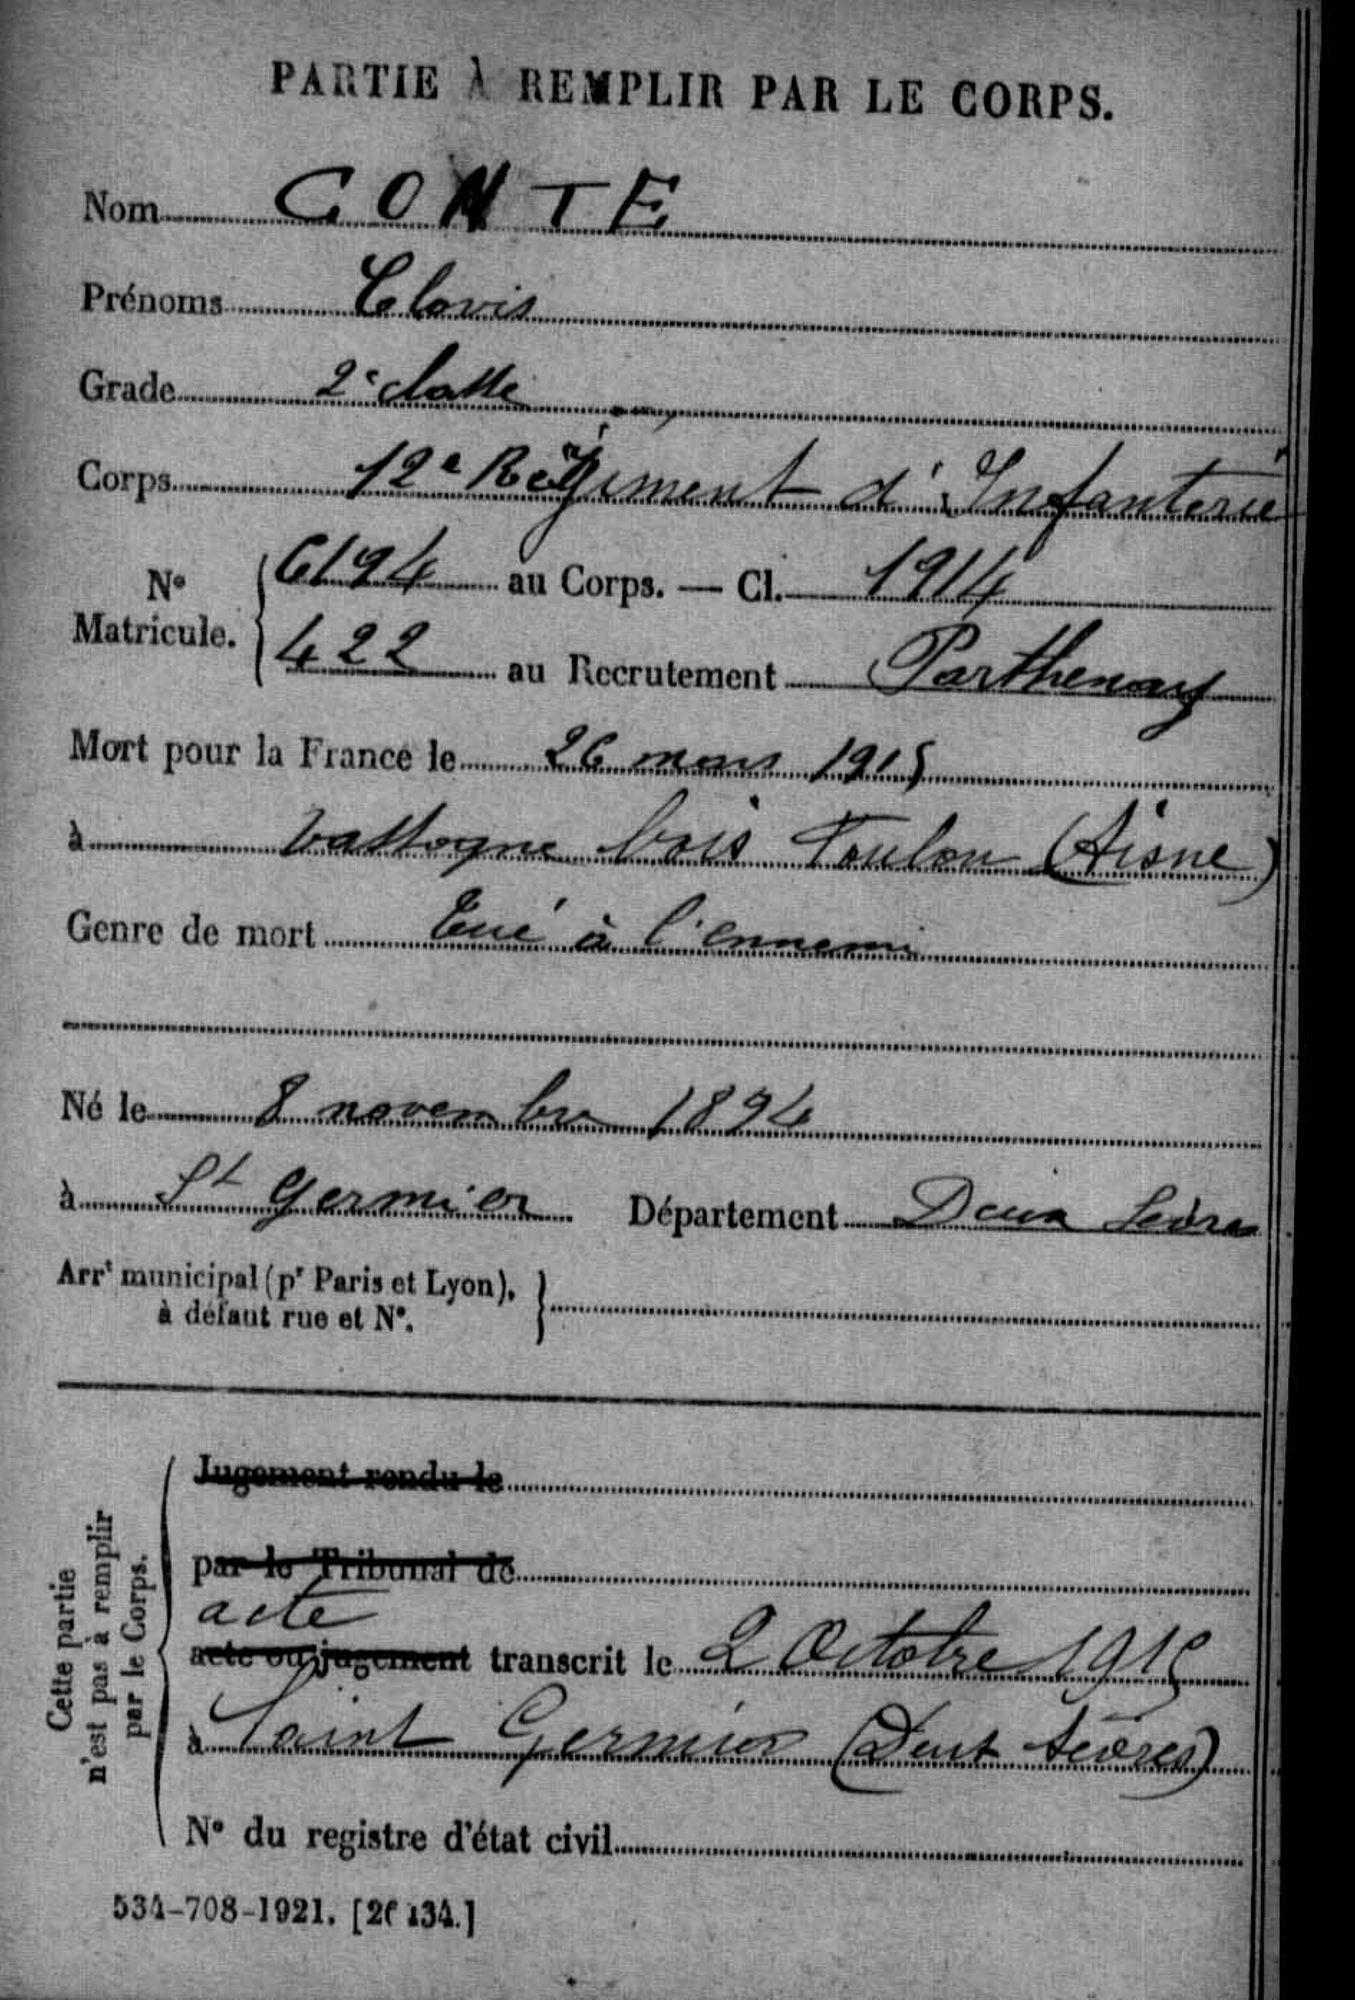 PARTIE À REMPLIR PAR LE CORPS.
Nom CONTE
Prénoms Clovis
Grade 2e classe
Corps 12e Régiment d'Infanterie
No Matricule. 6194 au Corps. — Cl. 1914
422 au Recrutement Parthenay
Mort pour la France le 26 mars 1915
à Vassogne bois Foulon (Aisne)
Genre de mort Tué à l'ennemi
Né le 8 novembre 1894
à St Germier Département Deux Sèvres
Arrt municipal (pr Paris et Lyon),
à défaut rue et No.
Cette partie
n'est pas à remplir
par le Corps.
Jugement rendu le
par le Tribunal de
acte
acte ou jugement transcrit le 2 Octobre 1915
à Saint Germier (Deux Sèvres)
No du registre d'état civil
534-708-1921. [26134.]